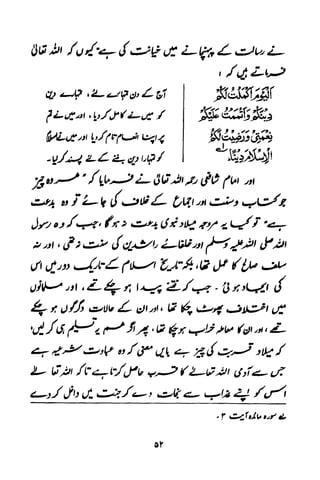 نے رسالت کے پہنچانے میں خیانت کی ہے" کیوں کہ اللہ تعالیٰ
فرماتے ہیں کہ :
اَلْیَوْمَ اَکْمَلْتُ لَکُمْ
دِیْنَکُمْ وَاَتْمَمْتُ عَلَیْکُمْ
نِعْمَتِیْ وَرَضِیْتُ لَکُمُ
الْاِسْلَامَ دِیْنًا ۔ لہ
آج کے دن تمہارے لئے ، تمہارے دین
کو میں نے کامل کر دیا ، اور میں نے تم
پر اپنا انعام تام کر دیا اور میں نے اسلام
کو تمہارا دین بننے کے لئے پسند کر لیا ۔
اور امام شافعی رحمہ اللہ تعالیٰ نے فرمایا کہ " ہر وہ چیز
جو کتاب وسنت اور اجماع کے خلاف کی جائے تو وہ بدعت
ہے" تو کیا یہ مروجہ میلاد نبوی بدعت نہ ہوگا ، جب کہ وہ رسول
اللہ صلی اللہ علیہ وسلم اور خلفائے راشدین کی سنت نہ تھی ، اور نہ
سلف صالح کا عمل تھا ، بلکہ تاریخ اسلام کے تاریک دور میں اس
کی ایجاد ہوئی ۔ جب کہ فتنے پیدا ہو چکے تھے ، اور مسلمانوں
میں اختلاف پھوٹ چکا تھا ، اور ان کے حالات دگرگوں ہو چکے
تھے ، اور ان کا معاملہ خراب ہو چکا تھا ، پھر اگر ہم یہ تسلیم ہی کر لیں ،
کہ میلاد قربت کی چیز ہے بایں معنی کہ وہ عبادت شرعیہ ہے
جس سے آدمی اللہ تعالےٰ کا قرب حاصل کرتا ہے تاکہ اللہ تعالےٰ
اس کو اپنے عذاب سے نجات دے کر جنت میں داخل کر دے
لہ سورہ مائدہ آیت ۳ ۔
۵۲